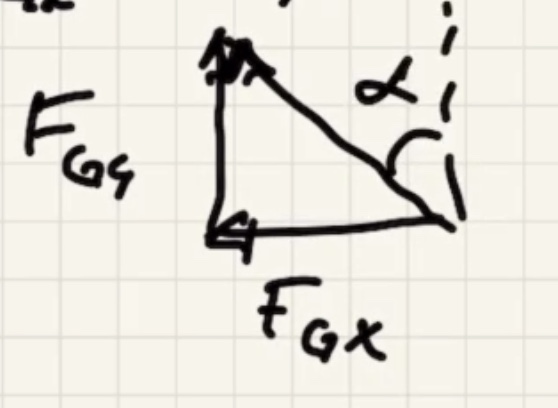 α
F_Gy
F_Gx